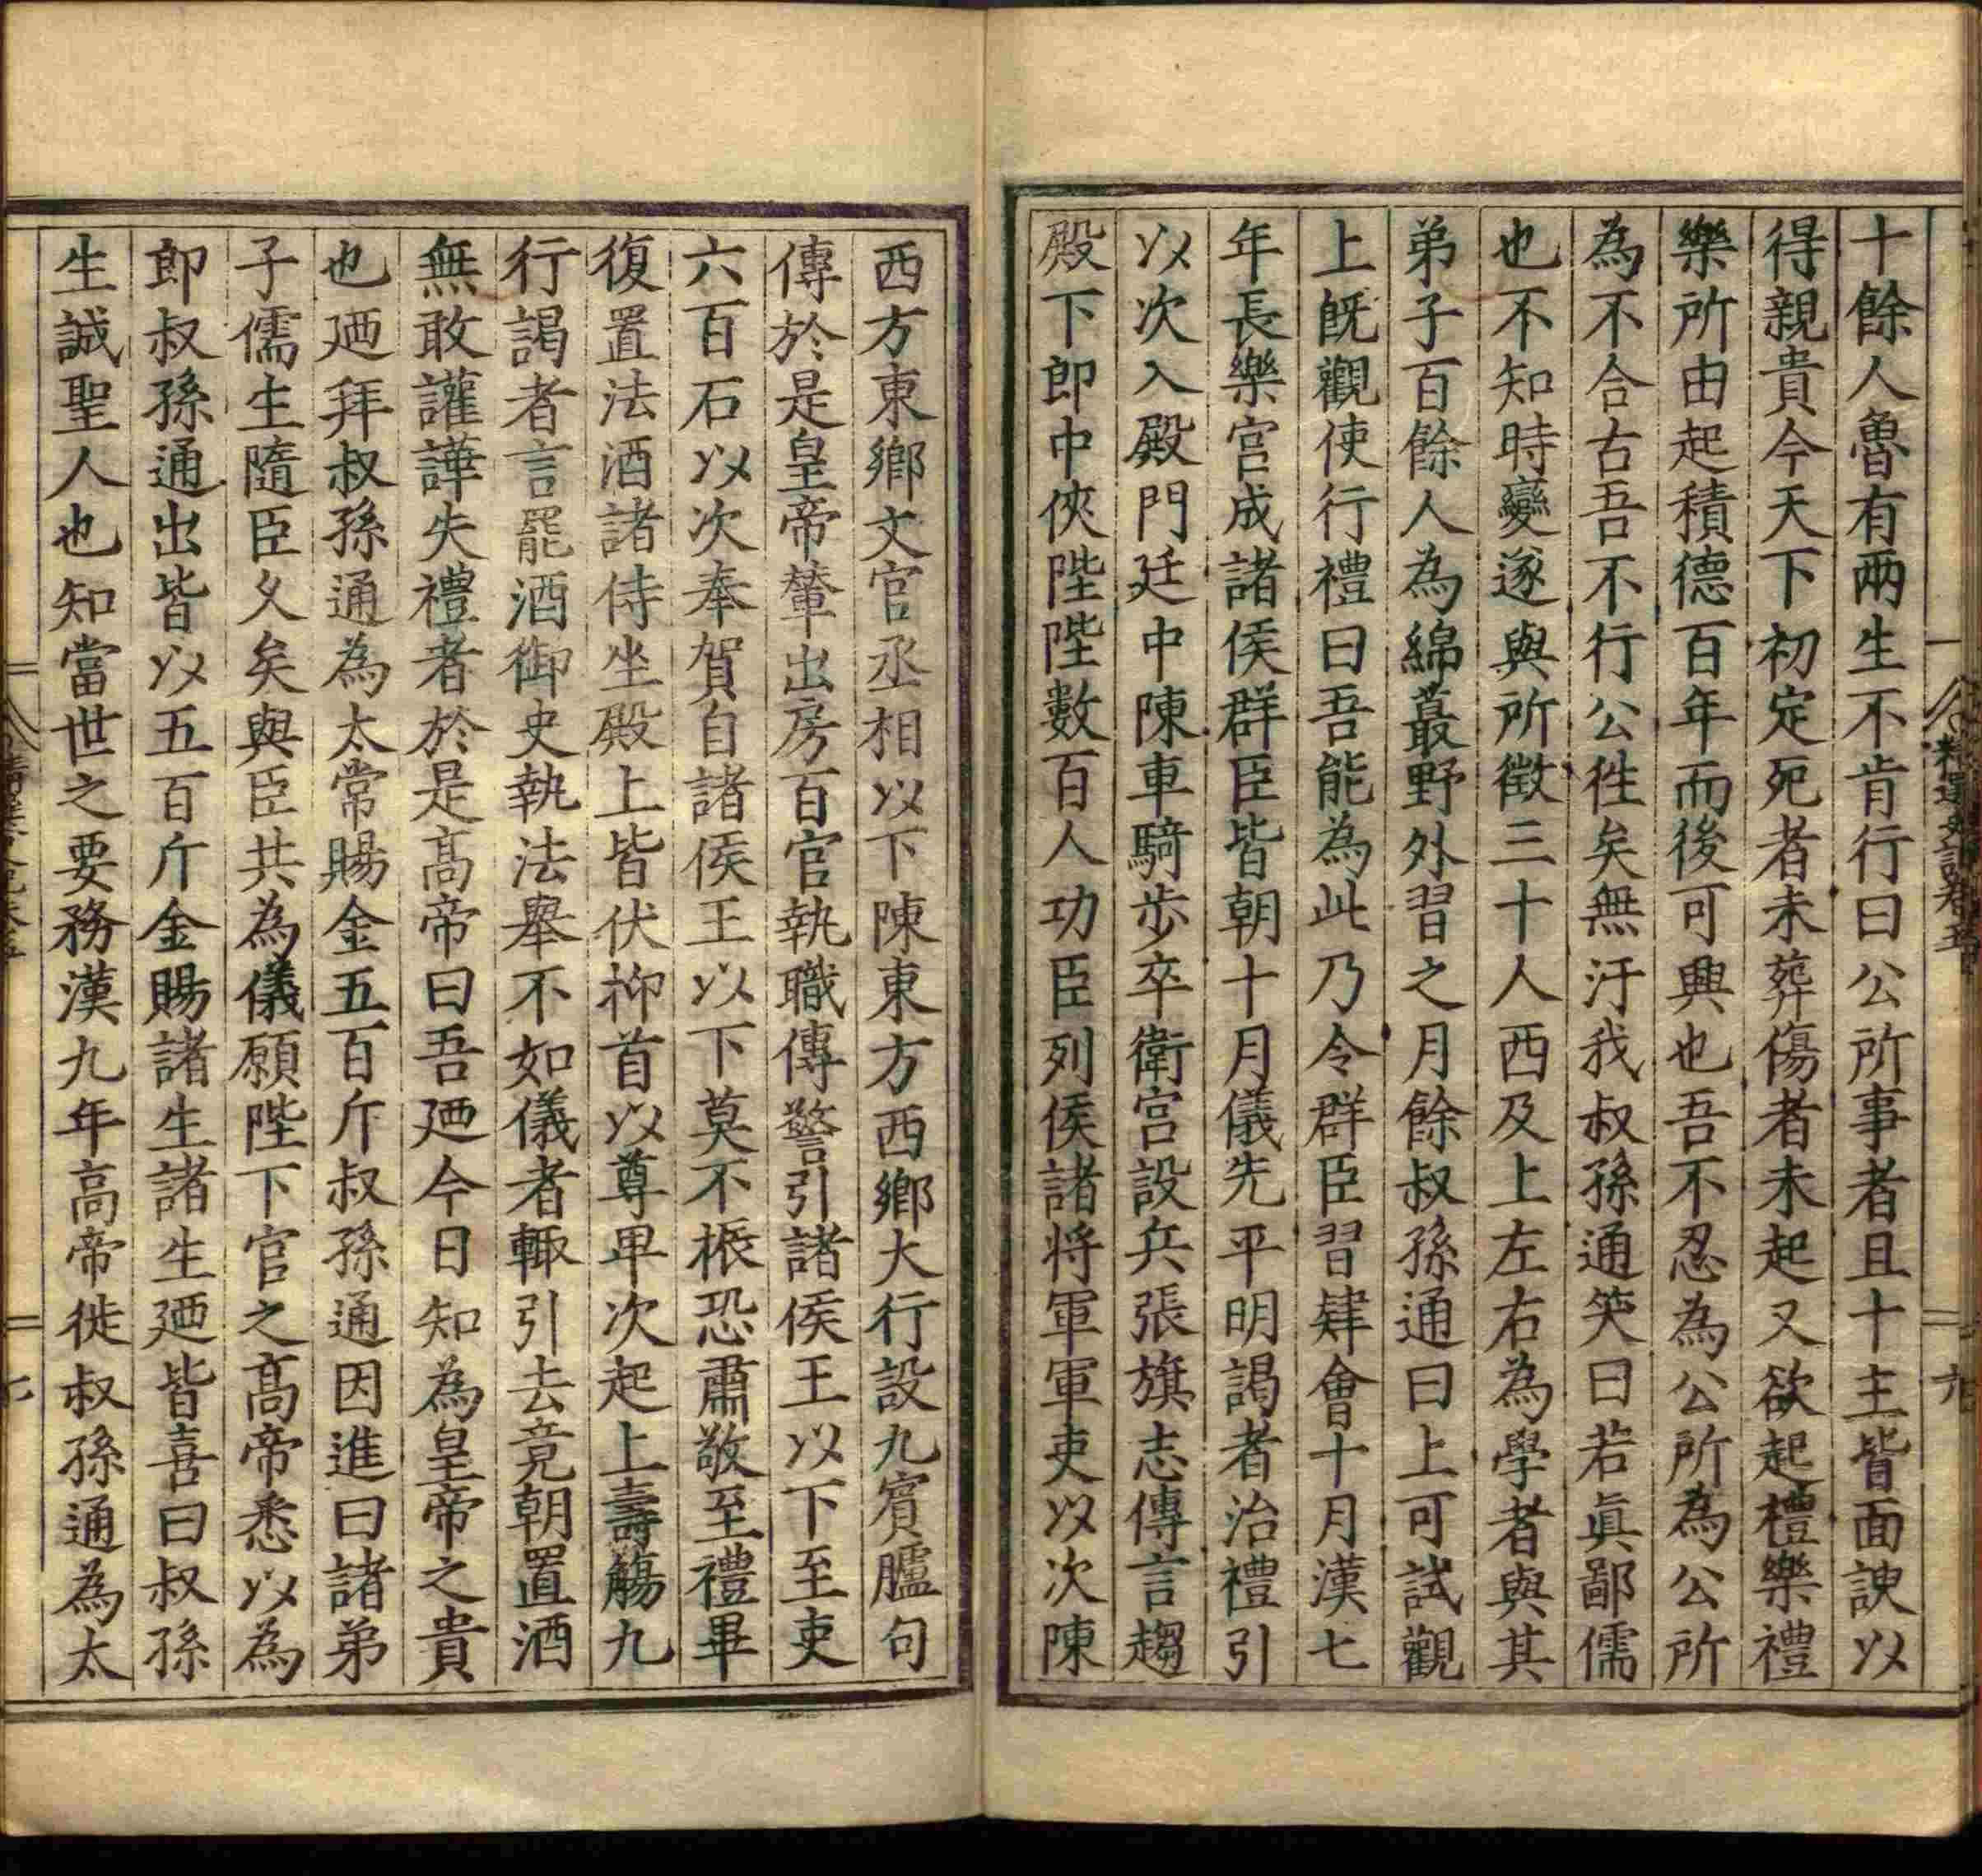 十餘人魯有兩生不肯行曰公所事者且十主皆面諛以
得親貴今天下初定死者未葬傷者未起又欲起禮樂禮
樂所由起積德百年而後可興也吾不忍為公所為公所
為不合古吾不行公徃矣無汙我叔孫通笑曰若眞鄙儒
也不知時變遂與所徵三十人西及上左右為學者與其
弟子百餘人為綿蕞野外習之月餘叔孫通曰上可試觀
上旣觀使行禮曰吾能為此乃令群臣習肄會十月漢七
年長樂宮成諸侯群臣皆朝十月儀先平明謁者治禮引
以次入殿門廷中陳車騎步卒衛宮設兵張旗志傳言趨
殿下郎中俠陛陛數百人功臣列侯諸將軍軍吏以次陳
西方東鄉文官丞相以下陳東方西鄉大行設九賓臚句
傳於是皇帝輦出房百官執職傳警引諸侯王以下至吏
六百石以次奉賀自諸侯王以下莫不振恐肅敬至禮畢
復置法酒諸侍坐殿上皆伏抑首以尊卑次起上壽觴九
行謁者言罷酒御史執法舉不如儀者輒引去竟朝置酒
無敢讙譁失禮者於是高帝曰吾廼今日知為皇帝之貴
也廼拜叔孫通為太常賜金五百斤叔孫通因進曰諸弟
子儒生隨臣久矣與臣共為儀願陛下官之高帝悉以為
郎叔孫通出皆以五百斤金賜諸生諸生廼皆喜曰叔孫
生誠聖人也知當世之要務漢九年高帝徙叔孫通為太